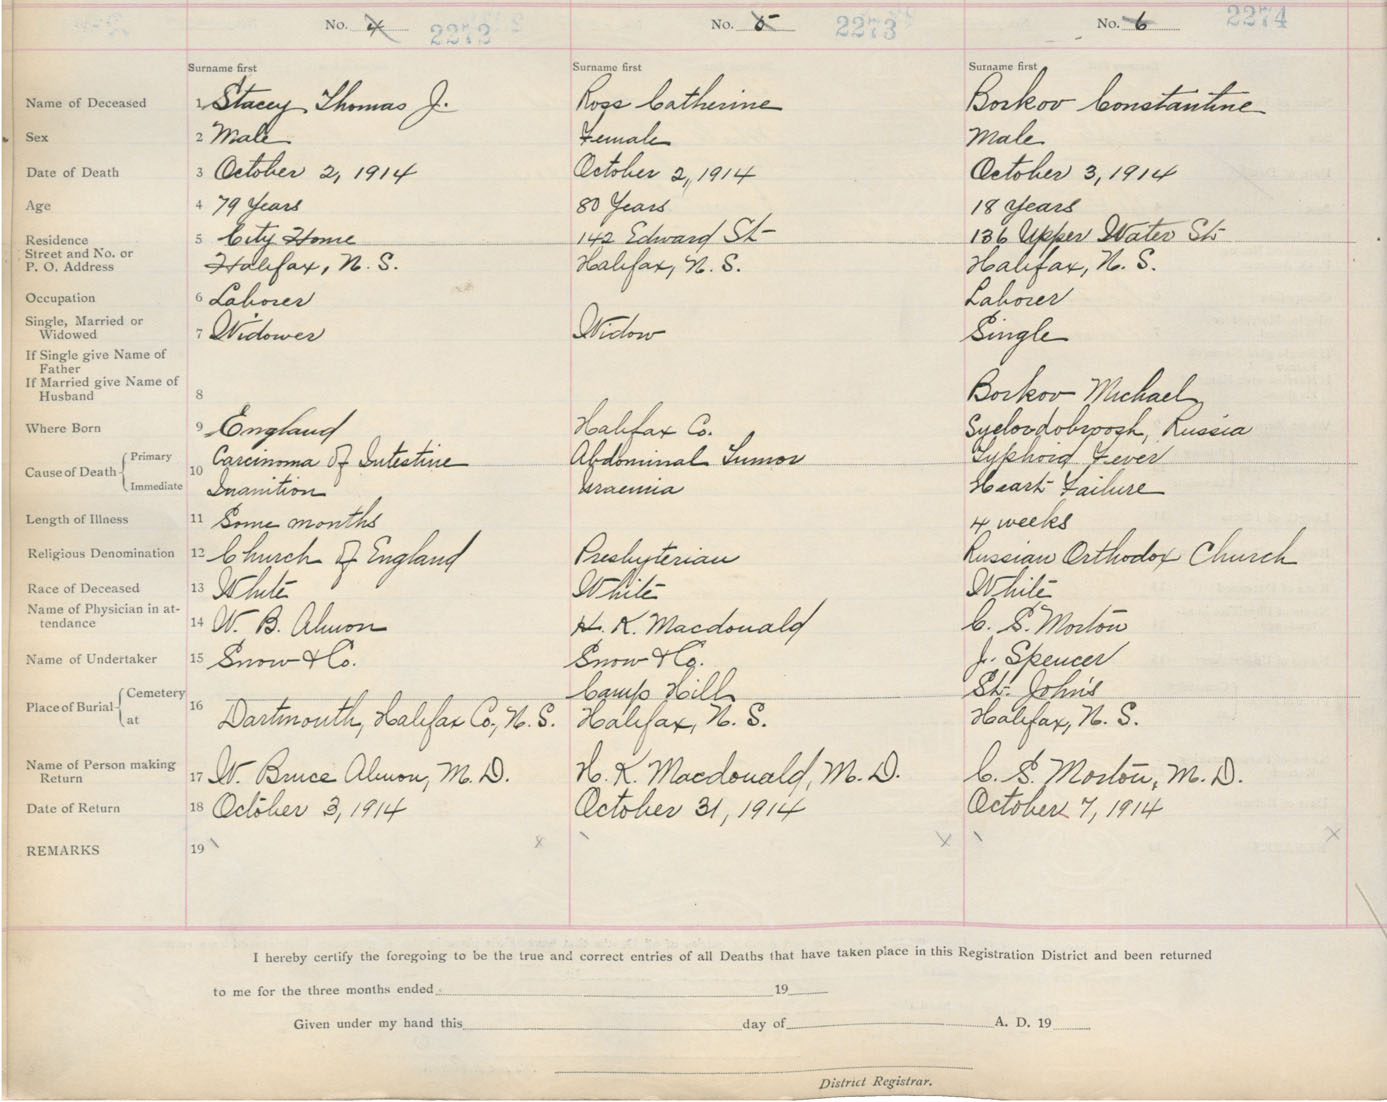 No. 4 2272 No. 5 2273 No. 6 2274
Surname first Surname first Surname first
Name of Deceased 1 Stacey Thomas J. Ross Catherine Borkov Constantine
Sex 2 Male Female Male
Date of Death 3 October 2, 1914 October 2, 1914 October 3, 1914
Age 4 79 Years 80 Years 18 Years
Residence 5 City Home 142 Edward St 136 Upper Water St
Street and No. or
P. O. Address Halifax, N. S. Halifax, N. S. Halifax, N. S.
Occupation 6 Laborer Laborer
Single, Married or
Widowed 7 Widower Widow Single
If Single give Name of
Father
If Married give Name of
Husband 8 Borkov Michael
Where Born 9 England Halifax Co. Syelovdobroosh, Russia
Cause of Death Primary 10 Carcinoma of Intestine Abdominal Tumor Typhoid Fever
Immediate Inanition Uraemia Heart Failure
Length of Illness 11 Some months 4 weeks
Religious Denomination 12 Church of England Presbyterian Russian Orthodox Church
Race of Deceased 13 White White White
Name of Physician in at-
tendance 14 W. B. Almon H. K. Macdonald C. S. Morton
Name of Undertaker 15 Snow & Co. Snow & Co. J. Spencer
Place of Burial Cemetery 16 Camp Hill St. John's
at Dartmouth, Halifax Co., N. S. Halifax, N. S. Halifax, N. S.
Name of Person making
Return 17 W. Bruce Almon, M. D. H. K. Macdonald, M. D. C. S. Morton, M. D.
Date of Return 18 October 3, 1914 October 31, 1914 October 7, 1914
REMARKS 19
I hereby certify the foregoing to be the true and correct entries of all Deaths that have taken place in this Registration District and been returned
to me for the three months ended 19
Given under my hand this day of A. D. 19
District Registrar.